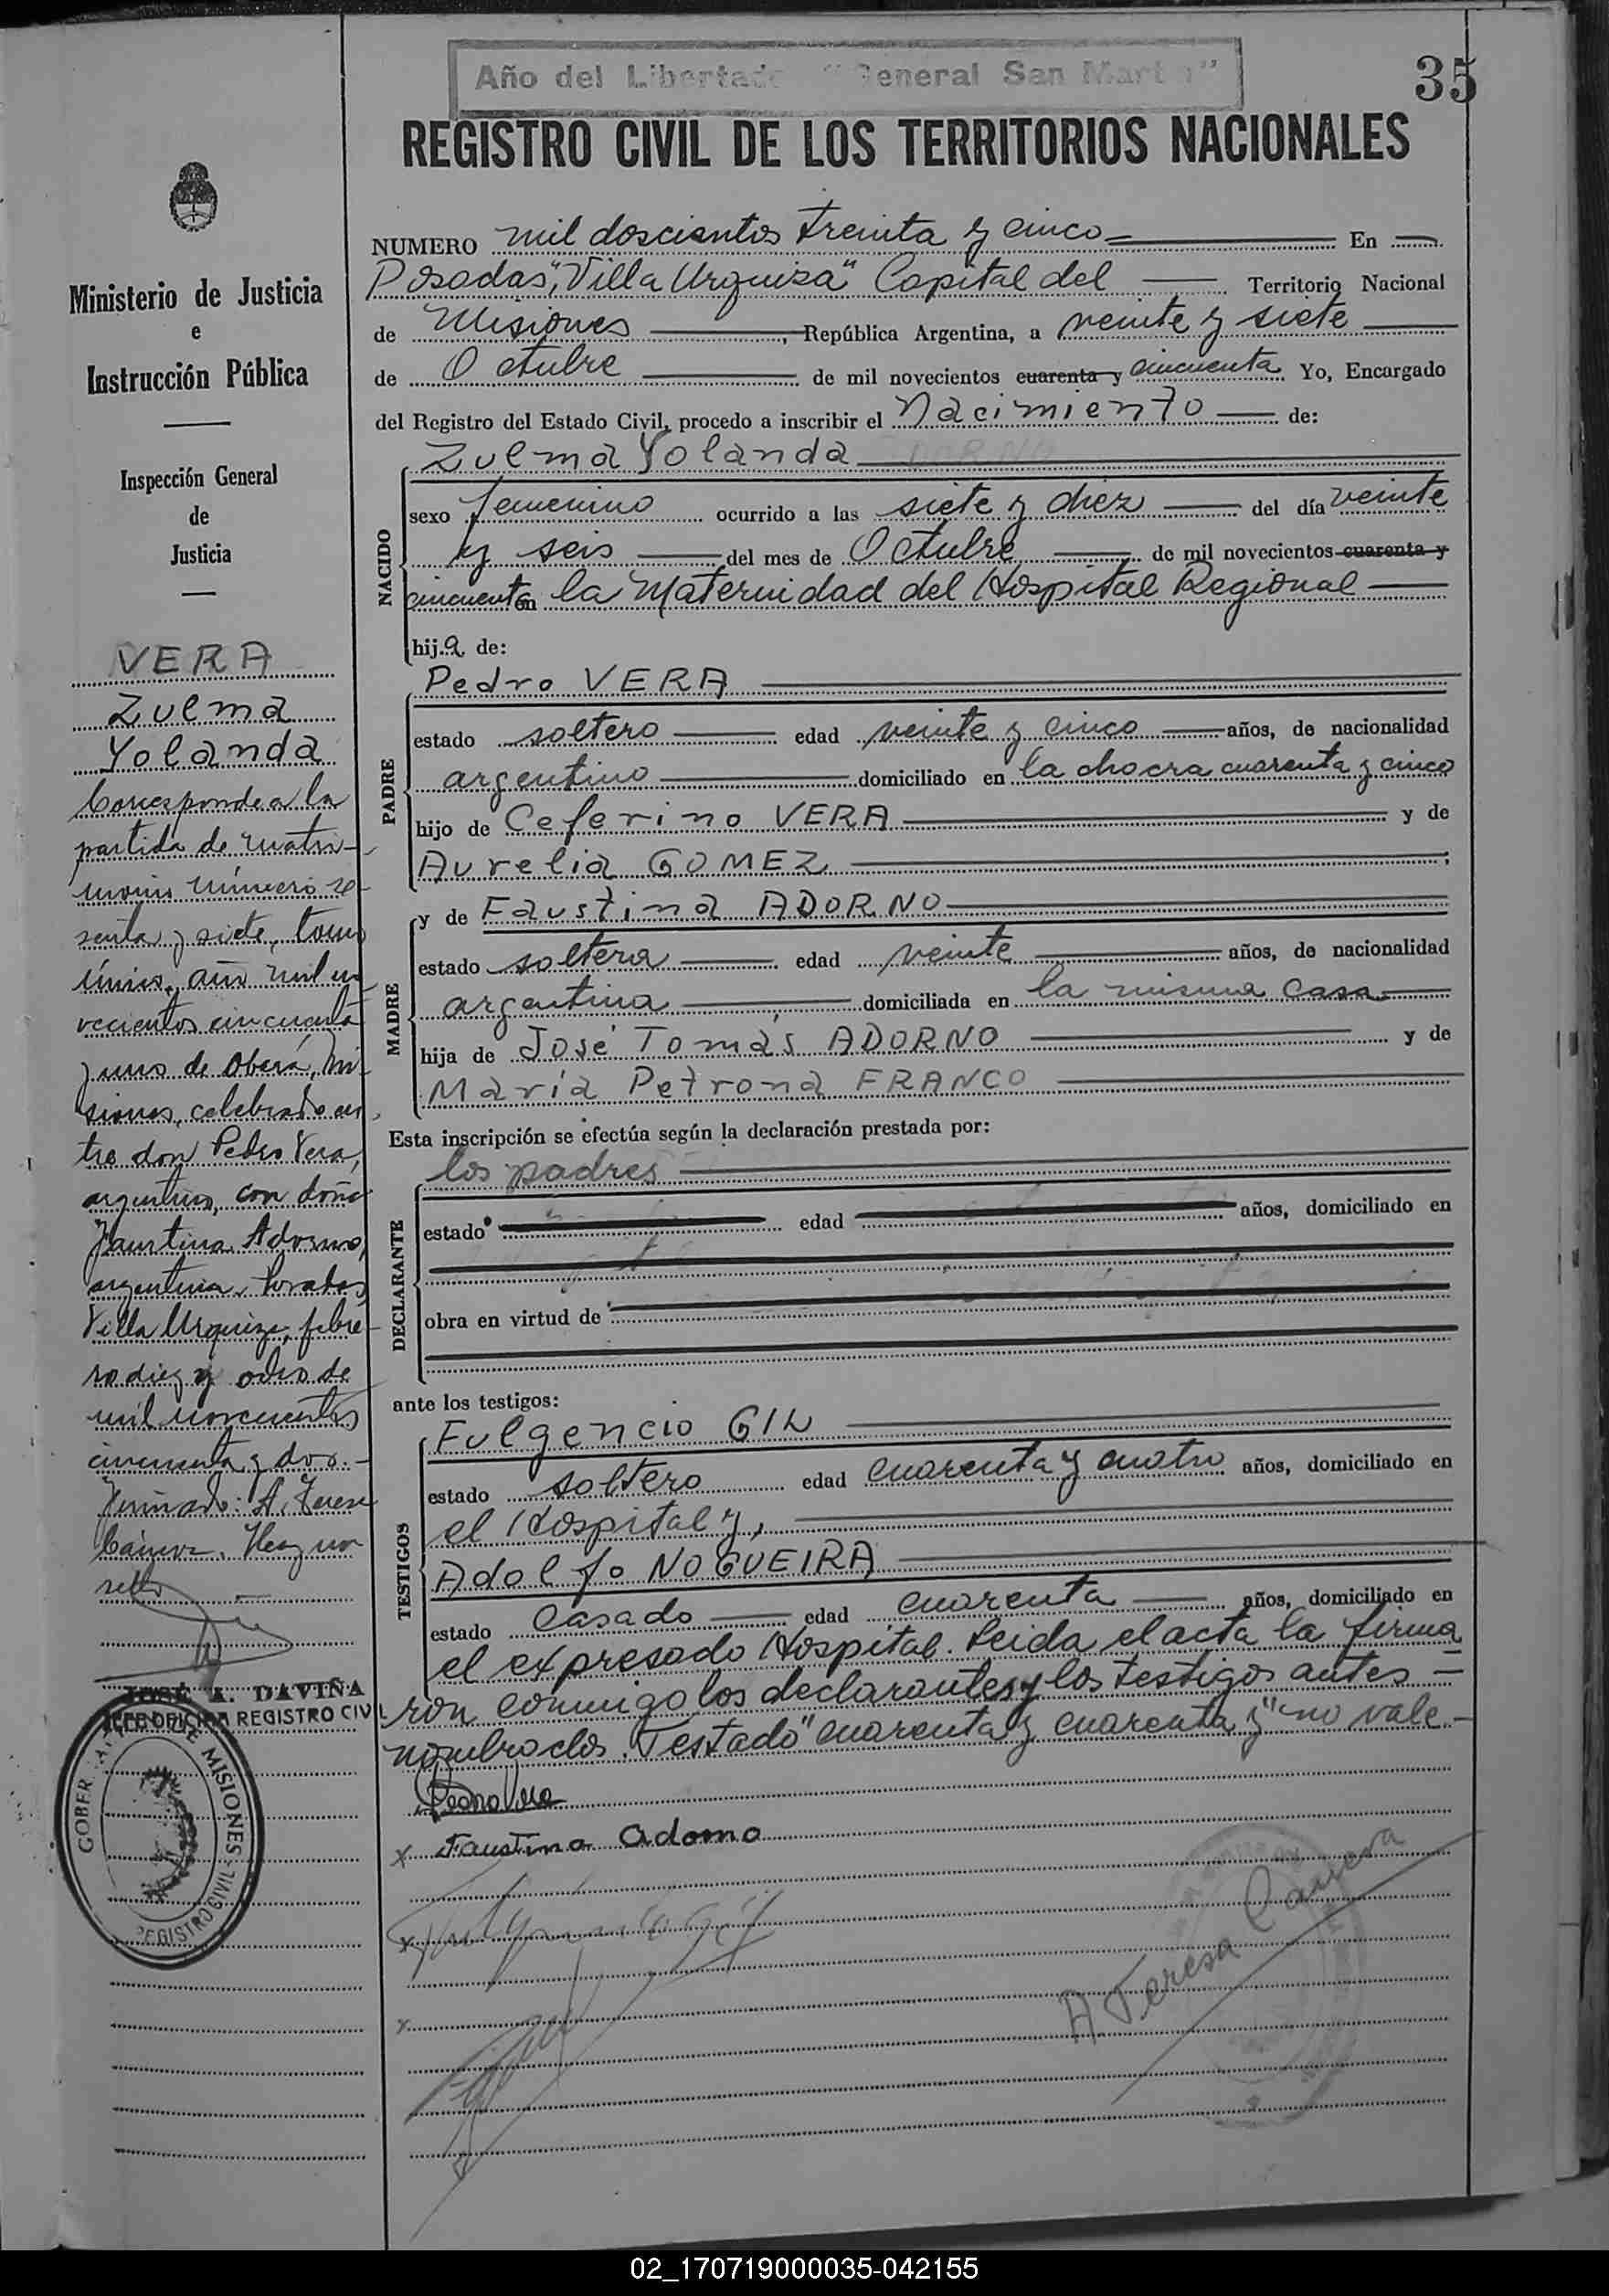 Año del Libertador "General San Martín"
35
REGISTRO CIVIL DE LOS TERRITORIOS NACIONALES
NUMERO mil doscientos treinta y cinco En
Posadas, "Villa Urquiza" Capital del Territorio Nacional
de Misiones, República Argentina, a veinte y siete
de Octubre de mil novecientos cuarenta y cincuenta Yo, Encargado
del Registro del Estado Civil, procedo a inscribir el Nacimiento de:
NACIDO
Zulma Yolanda
sexo femenino ocurrido a las siete y diez del día veinte
y seis del mes de Octubre de mil novecientos cuarenta y
cincuenta en la Maternidad del Hospital Regional
hija de:
PADRE
Pedro VERA
estado soltero edad veinte y cinco años, de nacionalidad
argentino domiciliado en la chacra cuarenta y cinco
hijo de Ceferino VERA y de
Aurelia GOMEZ;
MADRE
y de Faustina ADORNO
estado soltera edad veinte años, de nacionalidad
argentina domiciliada en la misma casa
hija de José Tomás ADORNO y de
María Petrona FRANCO
Esta inscripción se efectúa según la declaración prestada por:
DECLARANTE
los padres
estado edad años, domiciliado en
obra en virtud de
ante los testigos:
TESTIGOS
Fulgencio GIL
estado soltero edad cuarenta y cuatro años, domiciliado en
el Hospital y,
Adolfo NOGUEIRA
estado casado edad cuarenta años, domiciliado en
el expresado Hospital. Leida el acta la firma
ron conmigo los declarantes y los testigos antes =
nombrados. Testado "cuarenta y cuarenta y" no vale.-
Pedro Vera
x Faustina Adorno
x
x
A Teresa Caneva
Ministerio de Justicia
e
Instrucción Pública
Inspección General
de
Justicia
VERA
Zulma
Yolanda
Corresponde a la
partida de matri-
monio número se-
senta y siete, tomo
único, año mil no
vecientos cincuenta
y uno de Oberá, Mi-
siones, celebrado en-
tre don Pedro Vera,
argentino, con doña
Faustina Adorno,
argentina. Posadas,
Villa Urquiza, febre-
ro diez y ocho de
mil novecientos
cincuenta y dos.-
Firmado: A. Teresa
Caneva. Hay un
sello
JOSÉ A. DAVIÑA
JEFE OFICINA REGISTRO CIVIL
GOBERNACION DE MISIONES
REGISTRO CIVIL
02_170719000035-042155